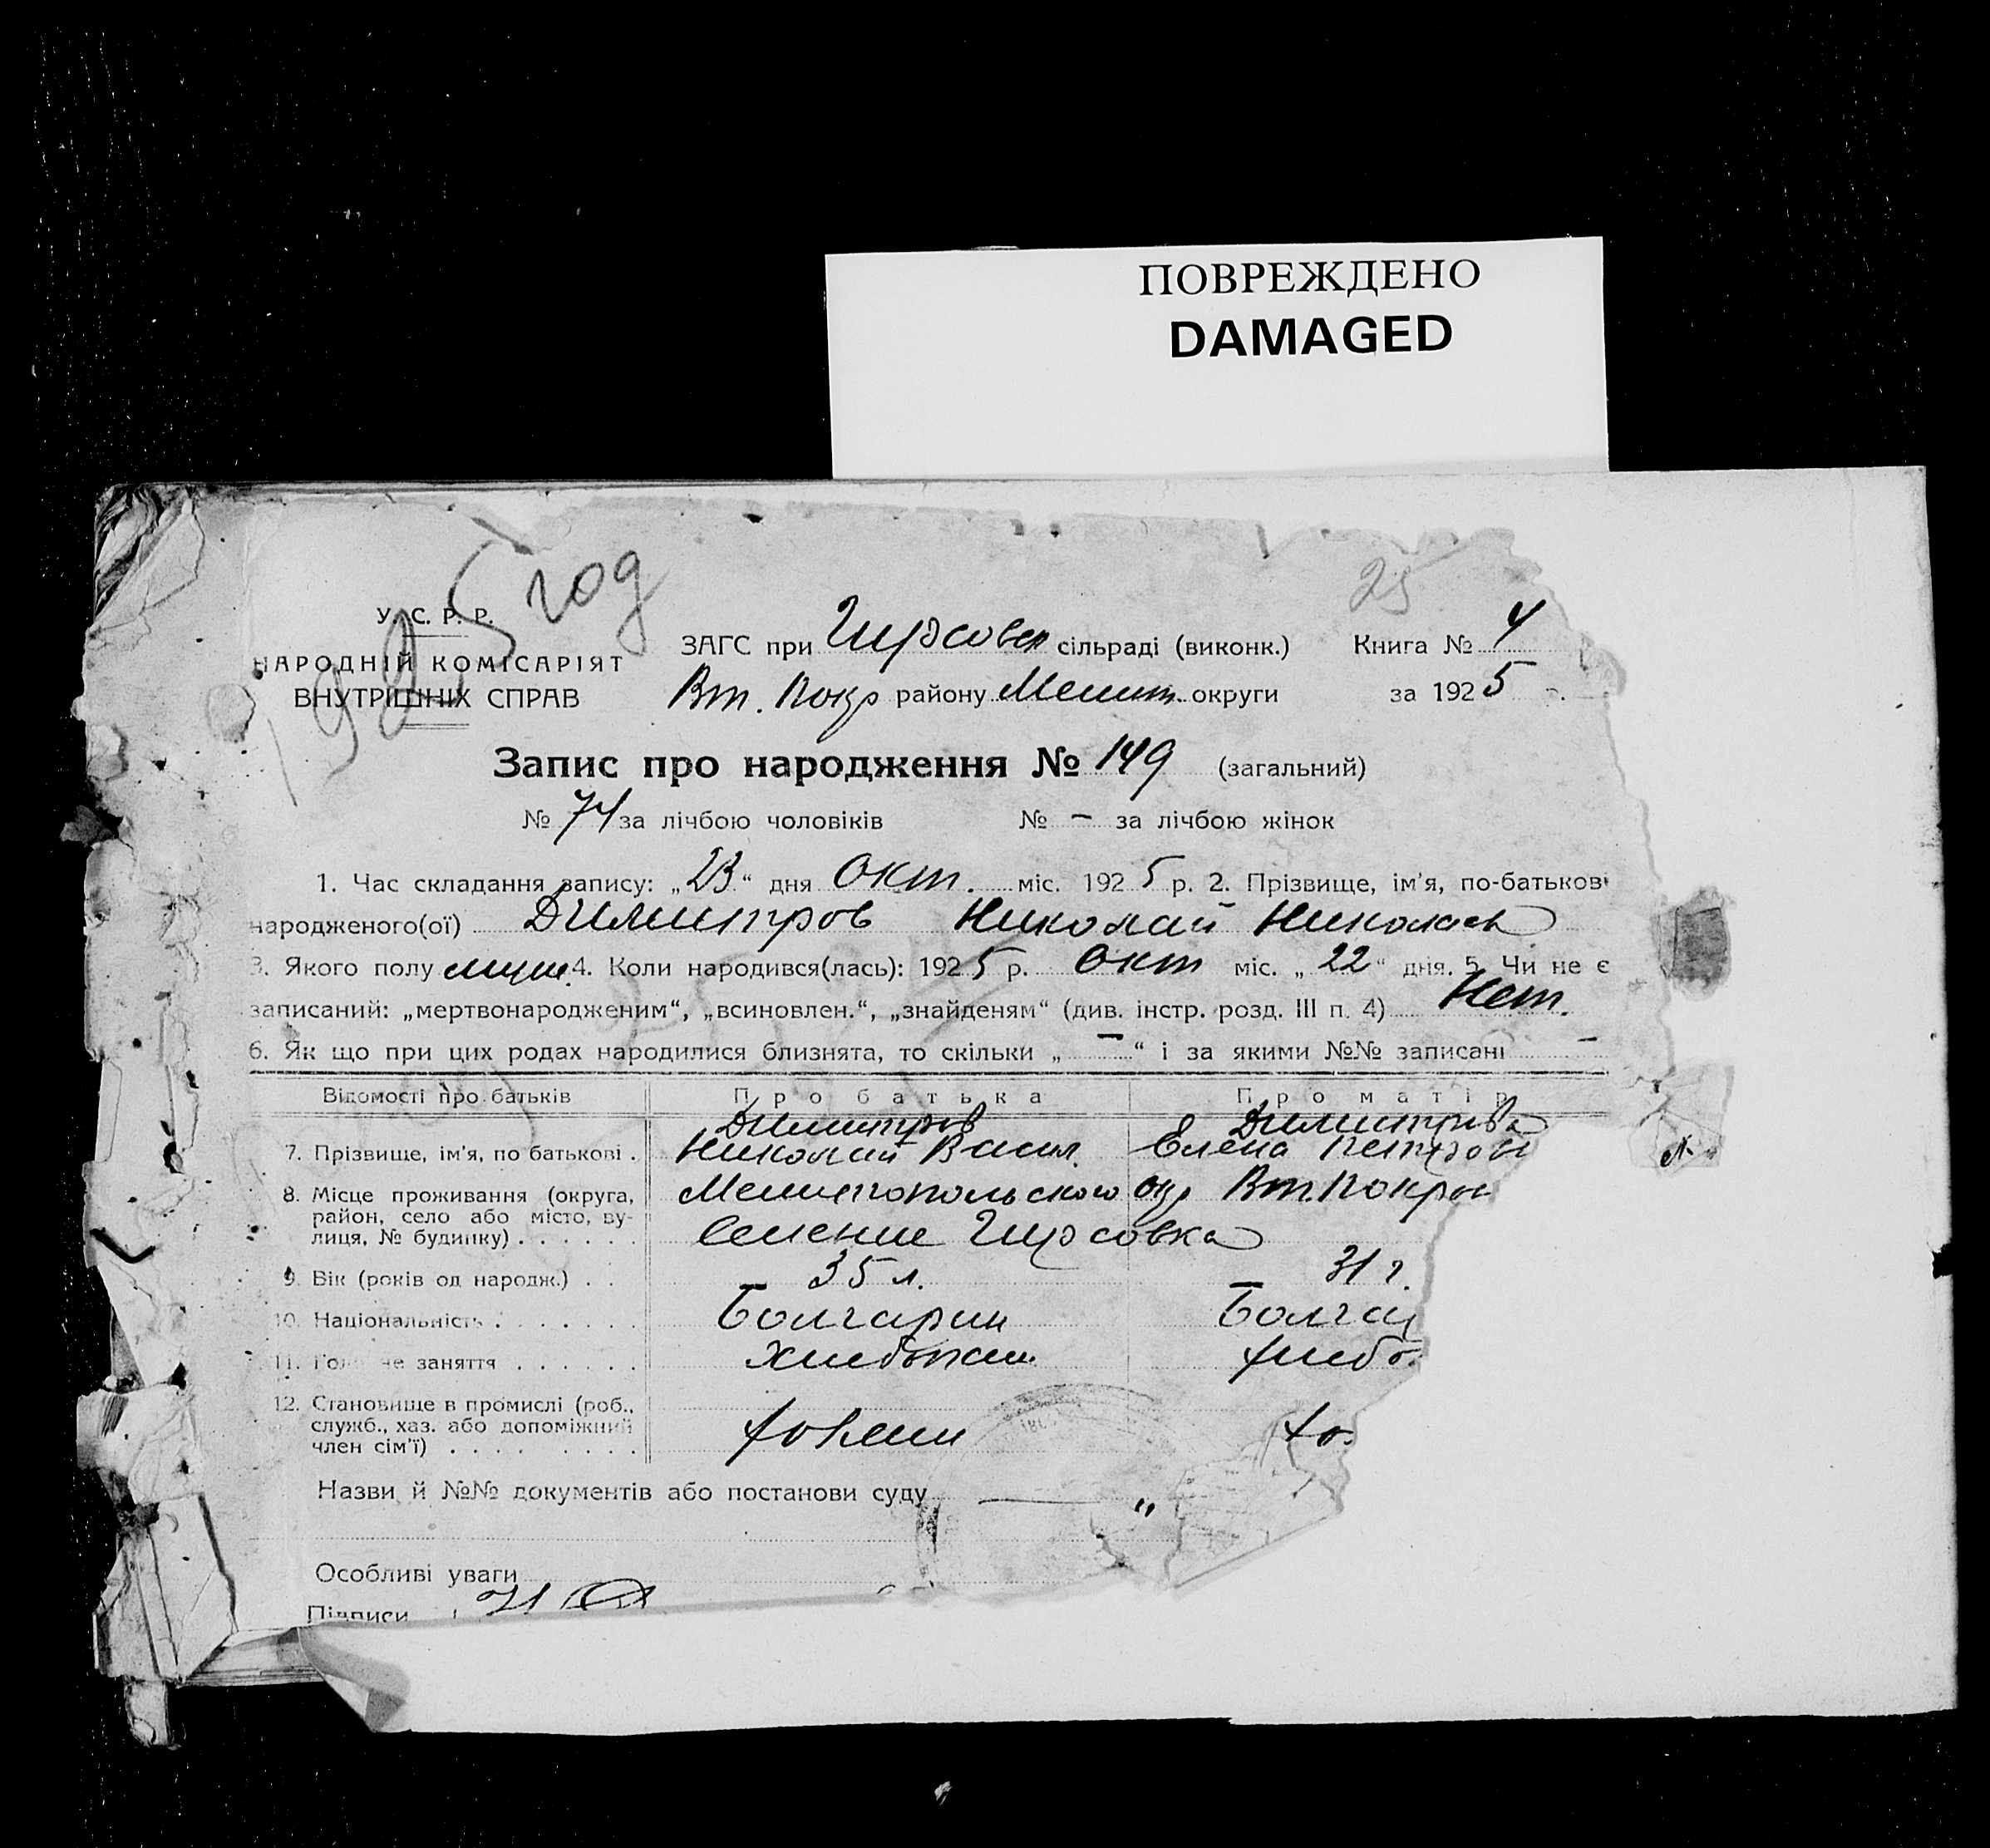 ПОВРЕЖДЕНО
DAMAGED
1925 год
25
У. С. Р. Р.
НАРОДНІЙ КОМІСАРІЯТ
ВНУТРІШНІХ СПРАВ
ЗАГС при Гирсовск сільраді (виконк.) Книга № 4
Вт. Покр району Мелит. округи за 1925 р.
Запис про народження № 149 (загальний)
№ 74 за лічбою чоловіків № – за лічбою жінок
1. Час складання запису: „23“ дня Окт. міс. 1925 р. 2. Прізвище, ім’я, по-батькові
народженого(ої) Димитров Николай Николаев
3. Якого полу муж. 4. Коли народився(лась): 1925 р. Окт міс. „22“ дня. 5. Чи не є
записаний: „мертвонародженим“, „всиновлен.“, „знайденям“ (див. інстр. розд. III п. 4) Нет.
6. Як що при цих родах народилися близнята, то скільки „–“ і за якими №№ записані –
Відомості про батьків Про батька Про матір
Димитров Димитрова
7. Прізвище, ім’я, по батькові . Николай Васил. Елена Петров
8. Місце проживання (округа, Мелитопольского окр Вт. Покров
район, село або місто, ву-
лиця, № будинку) . . . . . . селение Гирсовка
9. Вік (років од народж.) . . 35 л. 31 г.
10. Національність . . . . . . . Болгарин Болгар
11. Головне заняття . . . . . . Хлебопаш. хлебо.
12. Становище в промислі (роб.,
служб., хаз. або допоміжний
член сім’ї) . . . . . . . . хозяин хо.
Назви й №№ документів або постанови суду — "
Особливі уваги
Підписи